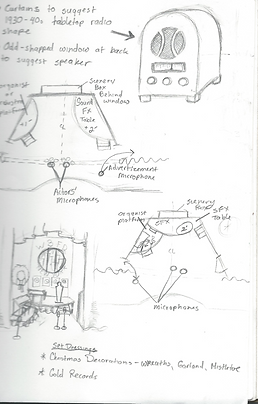 Curtains to suggest
1930-40s tabletop radio
shape
Odd-shapped window at back
to suggest speaker
Scenery
Box
Behind
window
organist
platform
Sound
FX
Table
"2"
Advertisement
microphone
Actors'
Microphones
Scenery
Box
SFX
Table
organist
platform
SFX
"2"
microphones
Set Dressings
* Christmas Decorations - wreaths, Garland, Mistletoe
* Gold Records